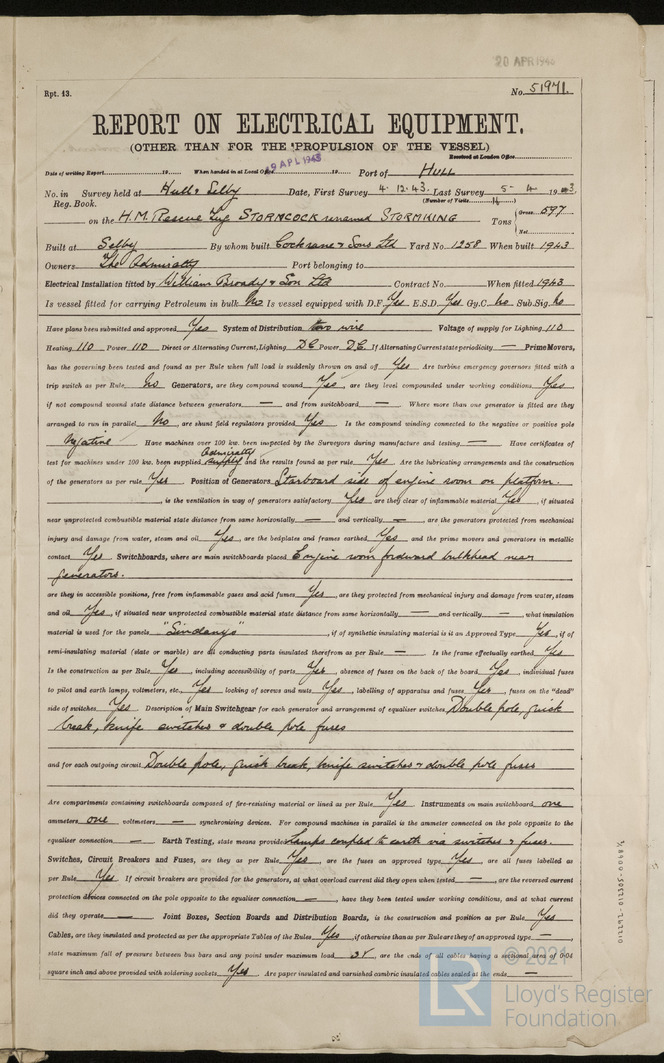 20 APR 1946
Rpt. 13.
No. 51971.
REPORT ON ELECTRICAL EQUIPMENT.
(OTHER THAN FOR THE PROPULSION OF THE VESSEL)
Received at London Office
Date of writing Report 19 When handed in at Local Office 19 APL 1943 19 Port of HULL
No. in Survey held at Hull & Selby Date, First Survey 4. 12. 43. Last Survey 5- 4 19 43.
Reg. Book. (Number of Visits 14)
on the H.M. Rescue Tug STORMCOCK renamed STORMKING Tons Gross 597
Net
Built at Selby By whom built Cochrane & Sons Ltd Yard No. 1258 When built 1943
Owners The Admiralty Port belonging to
Electrical Installation fitted by William Broady & Son Ltd Contract No. When fitted 1943
Is vessel fitted for carrying Petroleum in bulk No Is vessel equipped with D.F. Yes E.S.D. Yes Gy.C. No Sub.Sig. No
Have plans been submitted and approved Yes System of Distribution two wire Voltage of supply for Lighting 110
Heating 110 Power 110 Direct or Alternating Current, Lighting DC Power DC If Alternating Current state periodicity — Prime Movers,
has the governing been tested and found as per Rule when full load is suddenly thrown on and off Yes Are turbine emergency governors fitted with a
trip switch as per Rule No Generators, are they compound wound Yes, are they level compounded under working conditions Yes
if not compound wound state distance between generators — and from switchboard — Where more than one generator is fitted are they
arranged to run in parallel No, are shunt field regulators provided Yes Is the compound winding connected to the negative or positive pole
Negative Have machines over 100 kw. been inspected by the Surveyors during manufacture and testing — Have certificates of
test for machines under 100 kw. been supplied Admiralty supply and the results found as per rule Yes Are the lubricating arrangements and the construction
of the generators as per rule Yes Position of Generators Starboard side of engine room on platform.
, is the ventilation in way of generators satisfactory Yes are they clear of inflammable material Yes, if situated
near unprotected combustible material state distance from same horizontally — and vertically —, are the generators protected from mechanical
injury and damage from water, steam and oil Yes, are the bedplates and frames earthed Yes and the prime movers and generators in metallic
contact Yes Switchboards, where are main switchboards placed Engine room forward bulkhead near
generators.
are they in accessible positions, free from inflammable gases and acid fumes Yes, are they protected from mechanical injury and damage from water, steam
and oil Yes, if situated near unprotected combustible material state distance from same horizontally — and vertically —, what insulation
material is used for the panels "Sindanyo", if of synthetic insulating material is it an Approved Type Yes, if of
semi-insulating material (slate or marble) are all conducting parts insulated therefrom as per Rule — Is the frame effectually earthed Yes
Is the construction as per Rule Yes, including accessibility of parts Yes, absence of fuses on the back of the board Yes, individual fuses
to pilot and earth lamps, voltmeters, etc., Yes locking of screws and nuts Yes, labelling of apparatus and fuses Yes, fuses on the "dead"
side of switches Yes Description of Main Switchgear for each generator and arrangement of equaliser switches Double pole, quick
break, knife switches & double pole fuses
and for each outgoing circuit Double pole, quick break, knife switches & double pole fuses
Are compartments containing switchboards composed of fire-resisting material or lined as per Rule Yes Instruments on main switchboard one
ammeters one voltmeters — synchronising devices. For compound machines in parallel is the ammeter connected on the pole opposite to the
equaliser connection — Earth Testing, state means provided Lamps coupled to earth via switches & fuses.
Switches, Circuit Breakers and Fuses, are they as per Rule Yes, are the fuses an approved type Yes, are all fuses labelled as
per Rule Yes If circuit breakers are provided for the generators, at what overload current did they open when tested —, are the reversed current
protection devices connected on the pole opposite to the equaliser connection —, have they been tested under working conditions, and at what current
did they operate — Joint Boxes, Section Boards and Distribution Boards, is the construction and position as per Rule Yes
Cables, are they insulated and protected as per the appropriate Tables of the Rules Yes, if otherwise than as per Rule are they of an approved type —,
state maximum fall of pressure between bus bars and any point under maximum load 3V, are the ends of all cables having a sectional area of 0·04
square inch and above provided with soldering sockets Yes. Are paper insulated and varnished cambric insulated cables sealed at the ends —
012292-012305-0068½
© 2021
LR
Lloyd's Register
Foundation